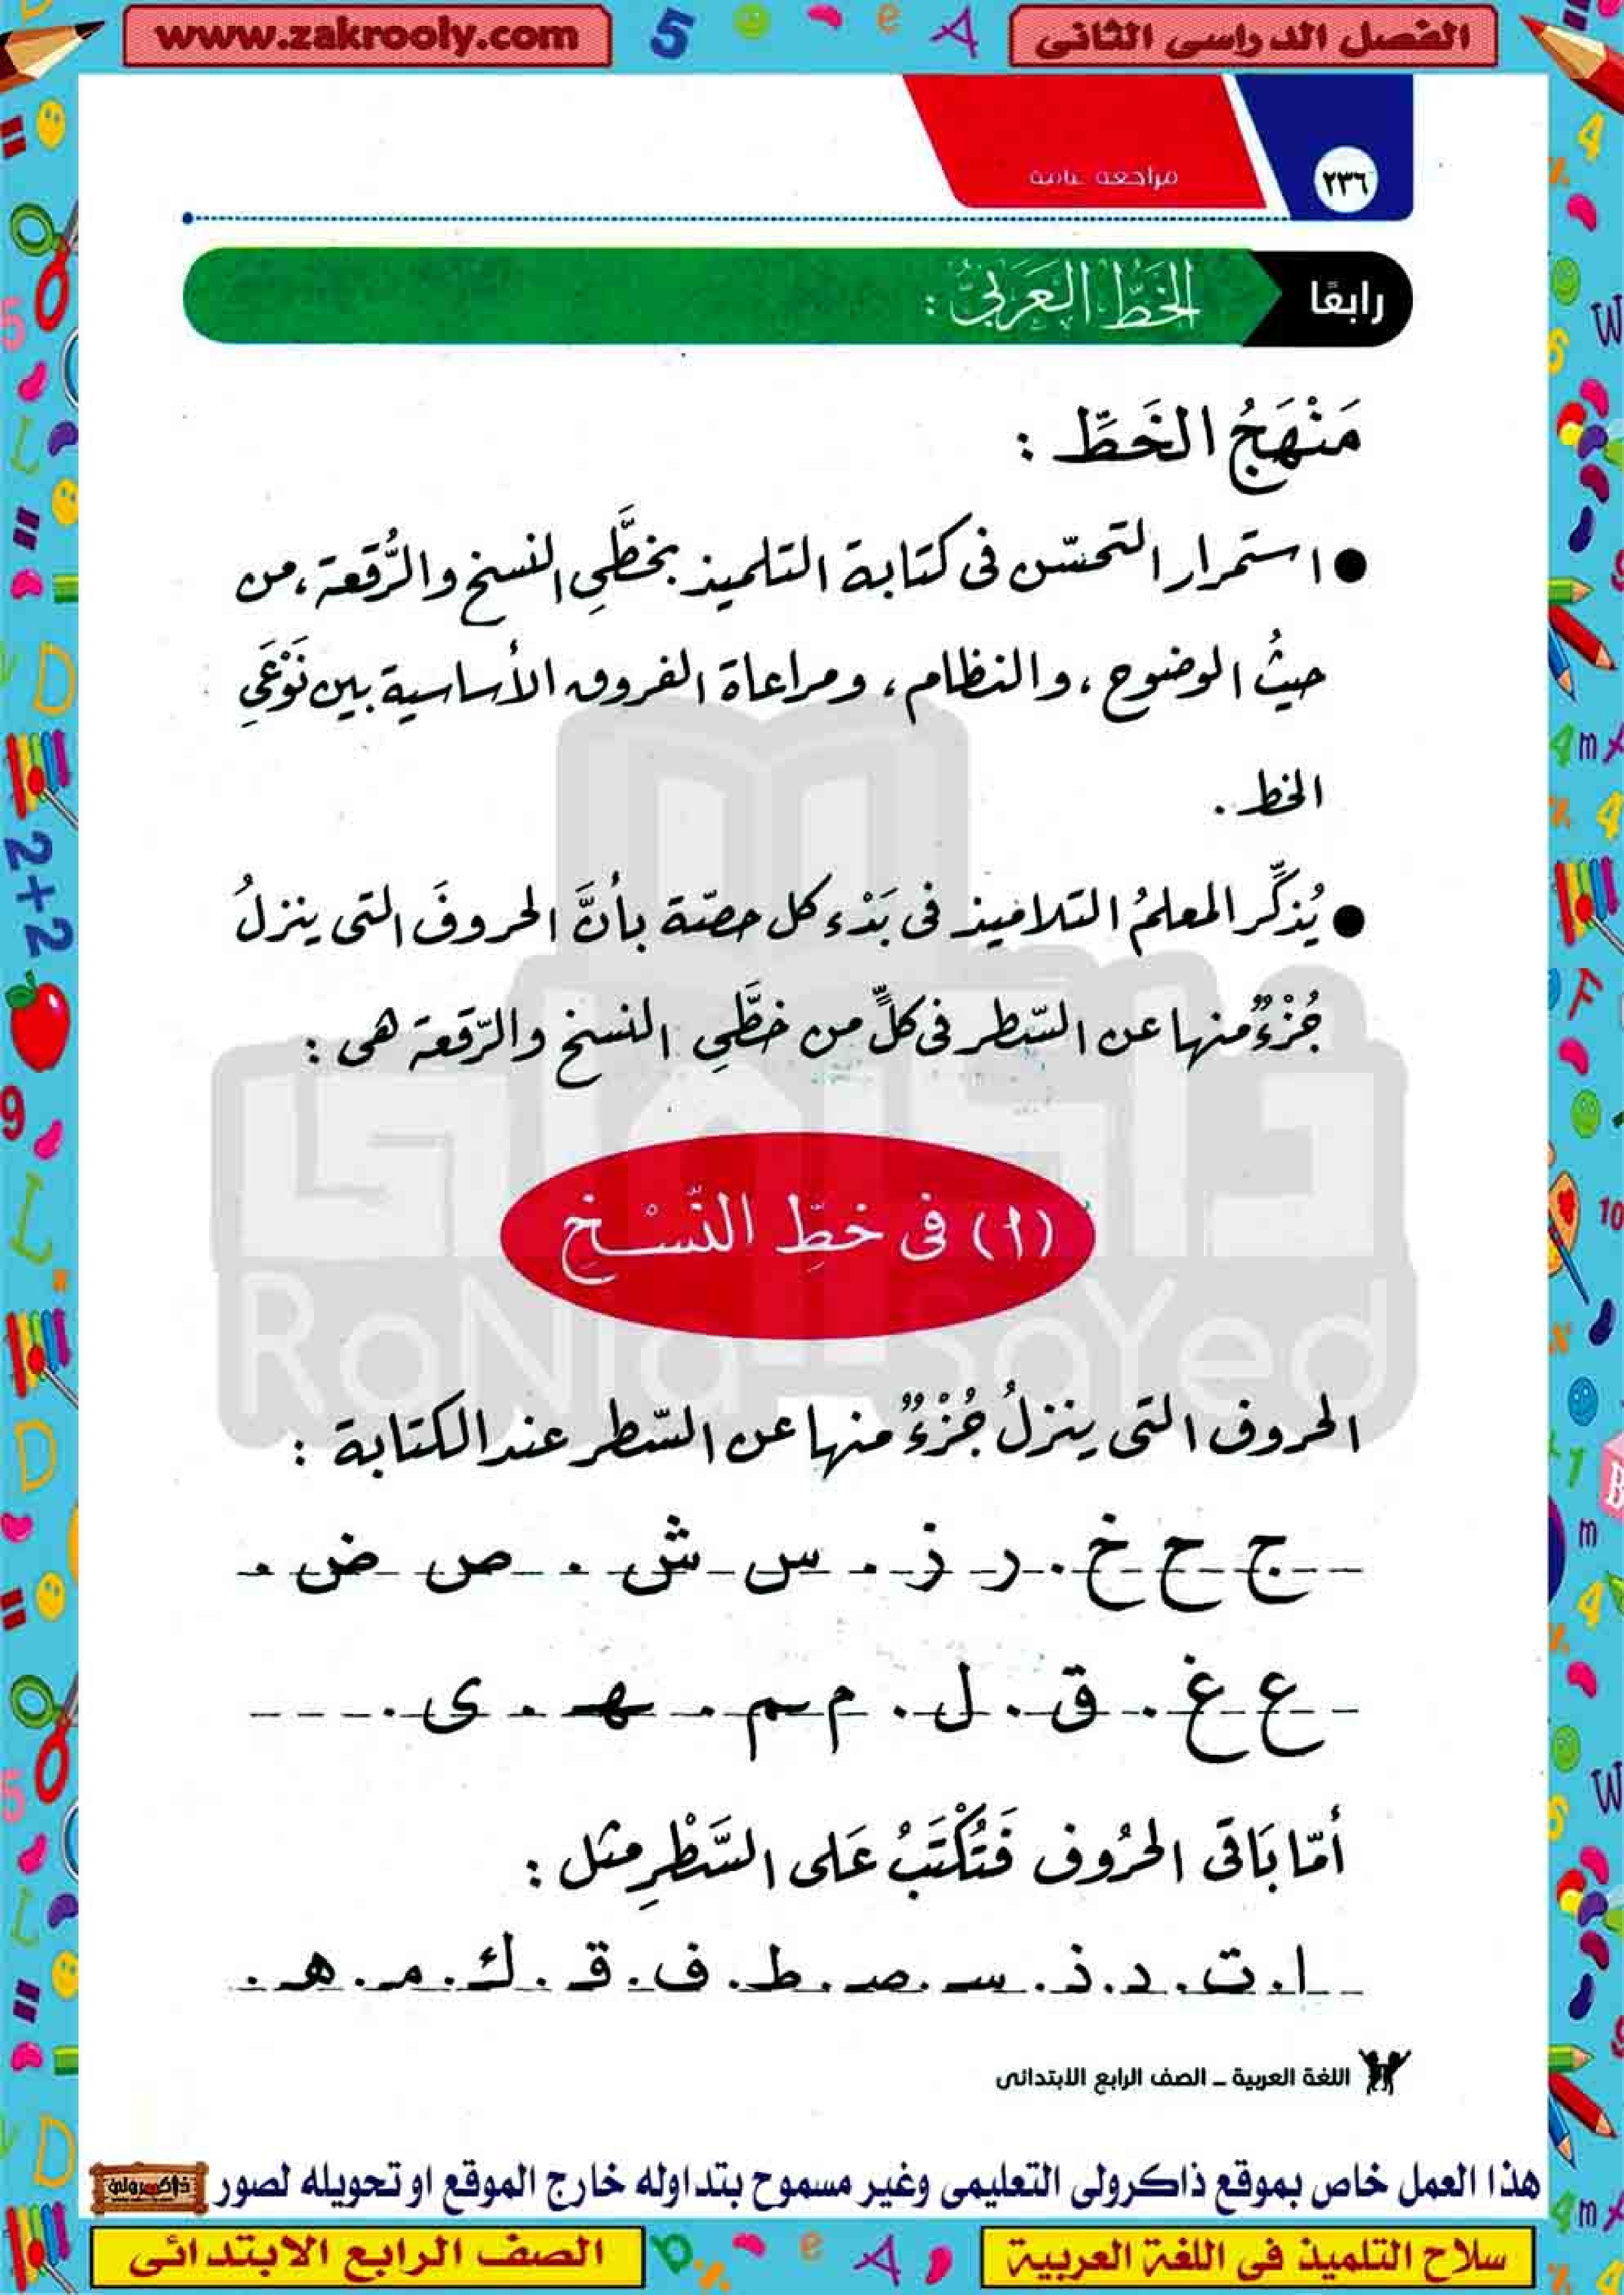 www.zakrooly.com
الفصل الدراسى الثانى
مراجعة عامة
٢٣٦
رابعًا
الخَطُّ العَرَبِيُّ :
مَنْهَجُ الخَطِّ :
● استمرار التحسّن فى كتابة التلميذ بخطَّيِ النسخ والرُّقعة، من
حيثُ الوضوح، والنظام، ومراعاة الفروق الأساسية بين نَوْعَيِ
الخط .
● يُذكِّر المعلمُ التلاميذ فى بَدْء كل حصّة بأنَّ الحروفَ التى ينزلُ
جُزْءٌ منها عن السّطر فى كلٍّ من خطَّيِ النسخ والرّقعة هى :
(١) فى خطِّ النَّسْخِ
الحروف التى ينزلُ جُزْءٌ منها عن السّطر عند الكتابة :
ج ح خ . ر ز . س ش . ص ض .
ع غ . ق . ل . م ـم . ـهـ . ى .
أمّا بَاقى الحُروف فَتُكْتَبُ عَلى السَّطْرِ مثل :
ا . ت . د . ذ . سـ . صـ . ط . ف . قـ . ك . مـ . هـ .
اللغة العربية ــ الصف الرابع الابتدائى
هذا العمل خاص بموقع ذاكرولى التعليمى وغير مسموح بتداوله خارج الموقع او تحويله لصور
ذاكرولى
سلاح التلميذ فى اللغة العربية
الصف الرابع الابتدائى
ذاكرولى
RaNia Sayed